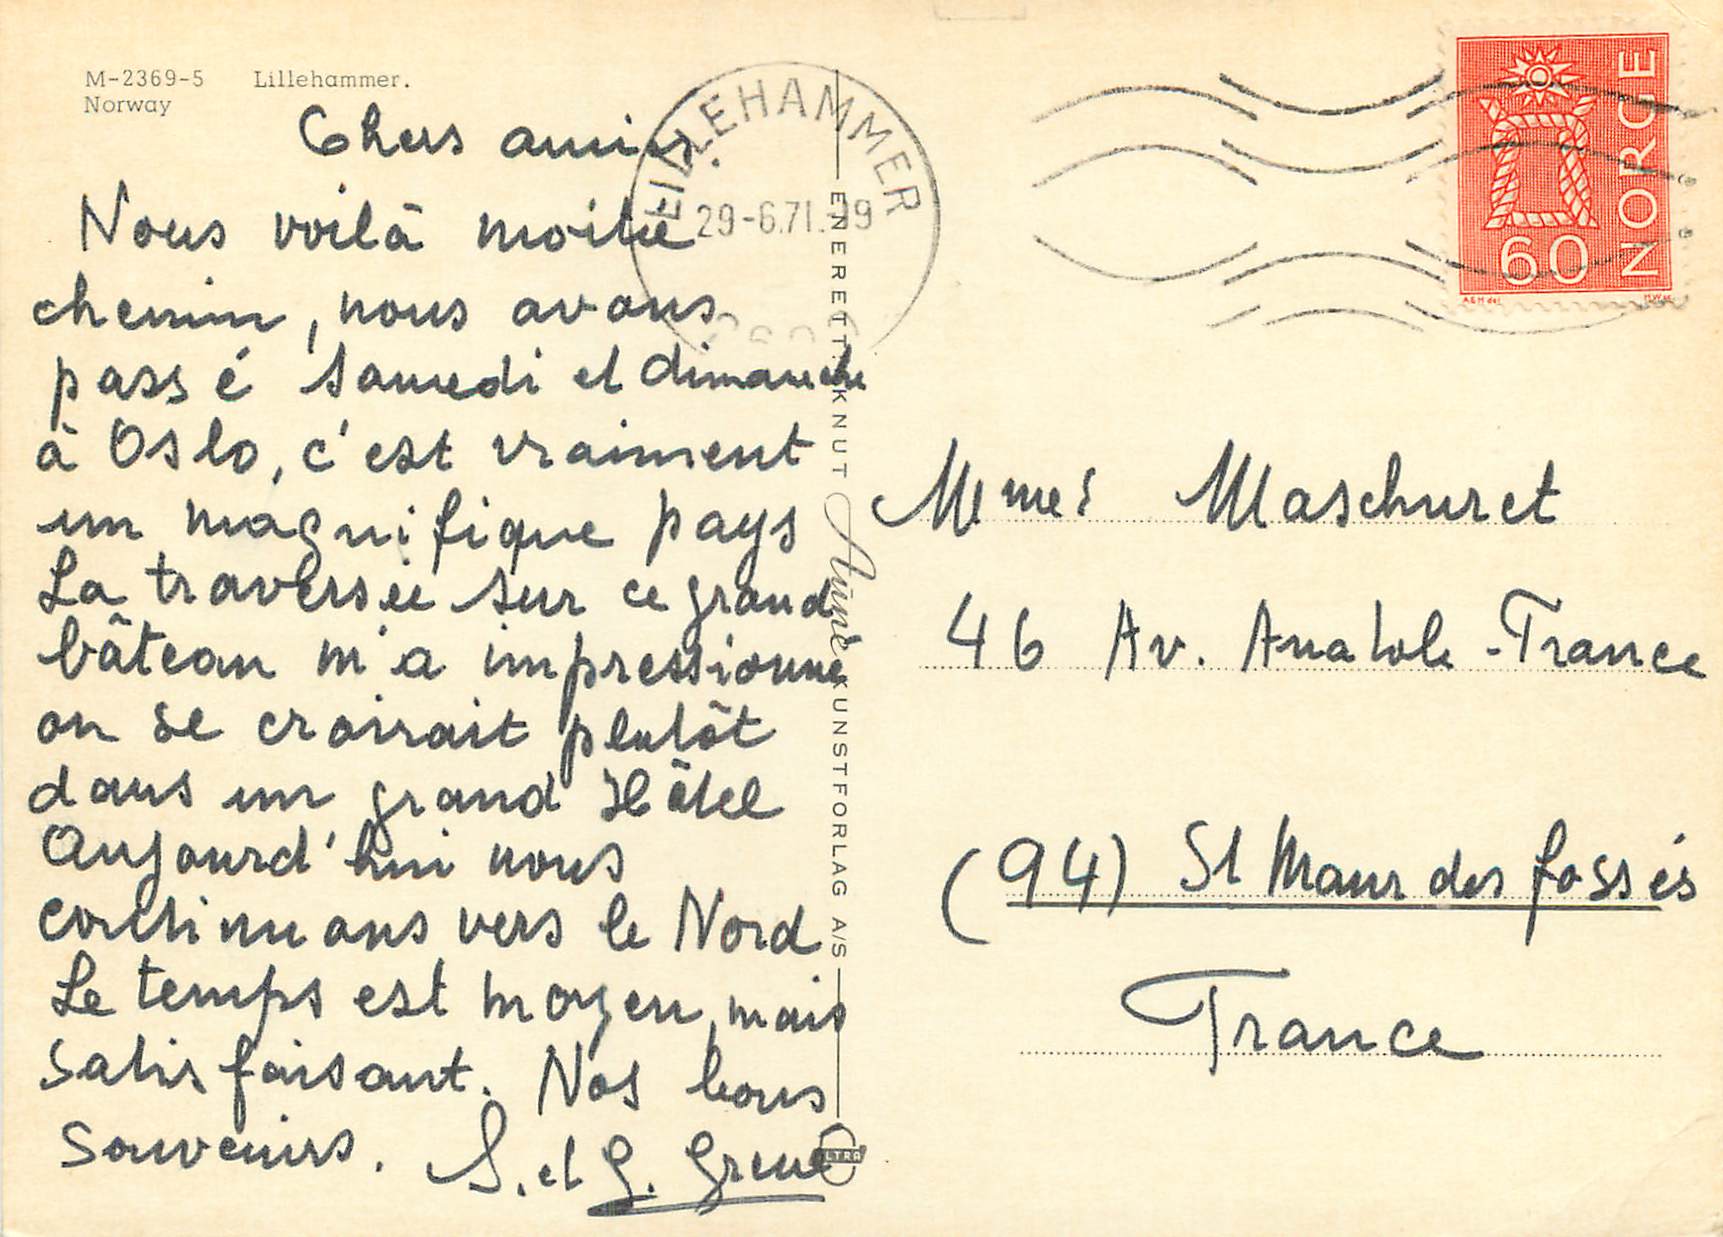 M-2369-5 Lillehammer.
Norway
Chers amis.
Nous voilà moitié
chemin, nous avons
passé Samedi et dimanche
à Oslo, c'est vraiment
un magnifique pays
La traversée sur ce grand
bâteau m'a impressionné
on se croirait plutôt
dans un grand Hôtel
Aujourd'hui nous
continuons vers le Nord
Le temps est moyen, mais
satisfaisant. Nos bons
souvenirs. S. et G.
LILLEHAMMER
29-6.71.19
ENERETT: KNUT Aune KUNSTFORLAG A/S
NORGE
60
Maschuret
46 Av. Anatole-France
(94) St Maur des fossés
France